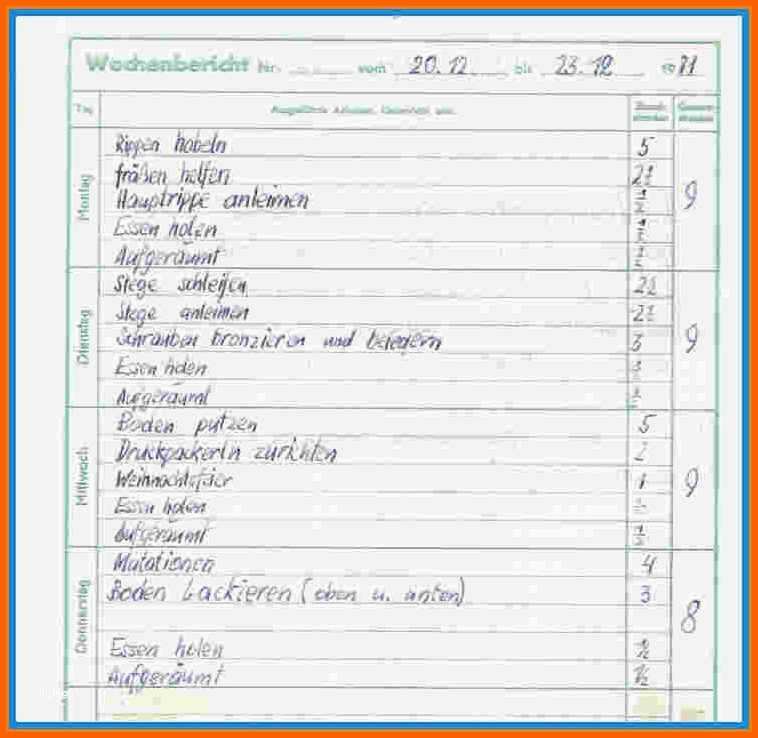 Wochenbericht Nr. vom 20.12. bis 23.12 1971
Tag Ausgeführte Arbeiten, Unterricht usw.
Montag
Rippen hobeln 5
fräßen helfen 2½
Hauptrippe anleimen ½
Essen holen ½
Aufgeräumt ½
9
Dienstag
Stege schleifen 2½
Stege anleimen 2½
Schrauben bronzieren und beledern 3
Essen holen ½
Aufgeräumt ½
9
Mittwoch
Boden putzen 5
zurichten 2
Weihnachtsfeier 1
Essen holen ½
Aufgeräumt ½
9
Donnerstag
Mutationen 4
Boden Lackieren (oben u. unten) 3
Essen holen ½
Aufgeräumt ½
8